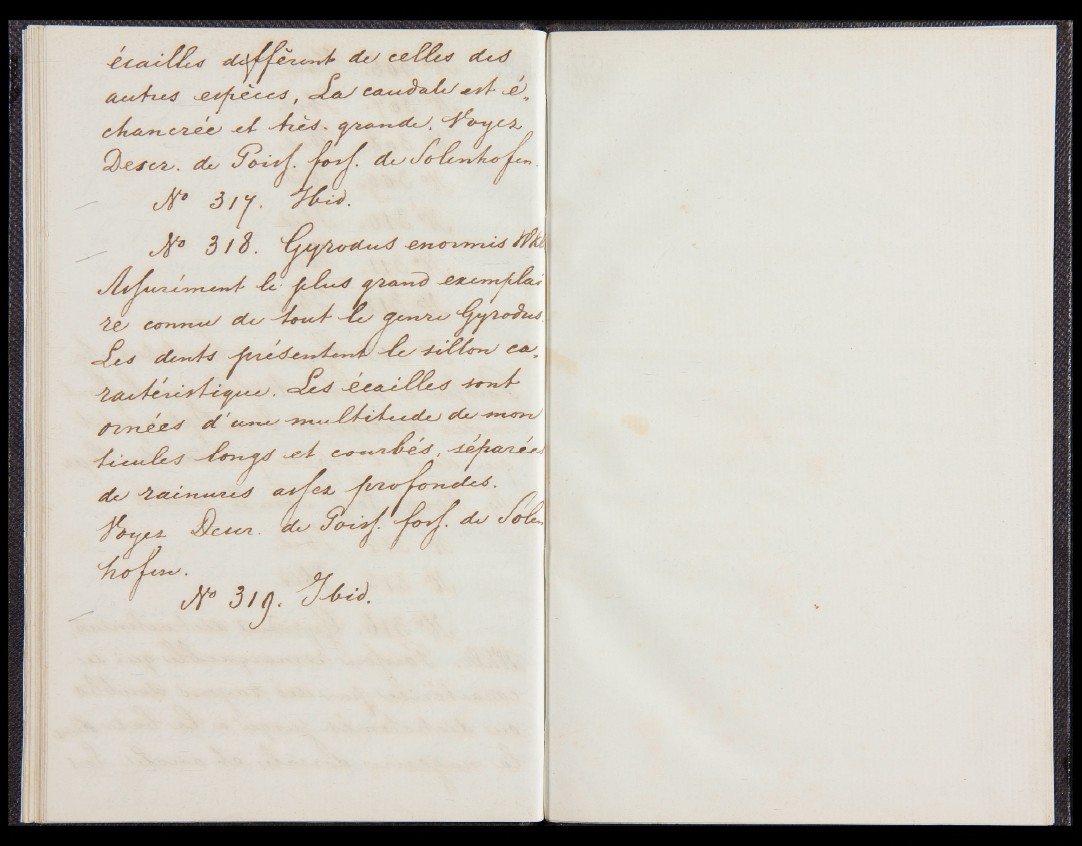 écailles diffèrent de celles des
autres espèces, La caudale est é„
chancrée et très-grande. Voyez
Descr. de Poiss. foss. de Solenhofen.
No 317. Ibid.
No 318. Gyrodus enormis
Assurément le plus grand exemplai
re connu de tout le genre Gyrodus.
Les dents présentent le sillon ca„
ractéristique. Les écailles sont
ornées d'une multitude de mon
ticules longs et courbés, séparées
de rainures assez profondes.
Voyez Descr. de Poiss. foss. de Solen
hofen.
No 319. Ibid.